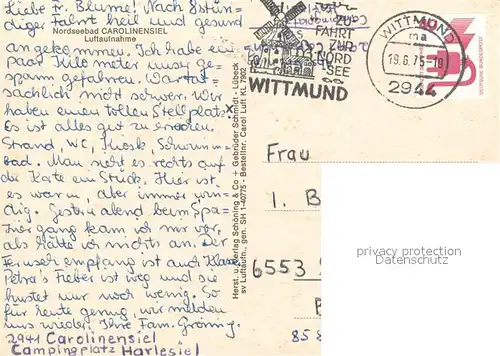 Liebe Fr. Blume! Nach 8stün-
diger Fahrt heil und gesund
Nordseebad CAROLINENSIEL
Luftaufnahme
angekommen. Ich habe ein
paar Kilometer musste ge-
spann gefahren. War tat-
sächlich nicht schwer. Wir
haben einen tollen Stellplatz
Es ist alles gut zu erreichen.
Strand, WC, Kiosk, Schwimm-
bad. Man sieht es rechts auf
die Karte ein Stück. Hier ist
es warm, aber immer win-
dig. Gestern abend beim Spa-
ziergang kam ich mir vor,
als hätte ich nichts an. Der
Fernsehempfang ist auch Klasse
Petra's Fieber ist weg und sie
hustet nur noch wenig. So
für heute genug, wir melden
uns wieder. Ihre Fam.
2941 Carolinensiel
Campingplatz Harlesiel
Herst. u. Verlag Schöning & Co + Gebrüder Schmidt · Lübeck
sv Luftaufn., gen. SH 1-40775 - Bestellnr. Carol Luft KL 7902
ZUR
FAHRT
ZUR
NORD
SEE
WITTMUND
WITTMUND
ma
19.6.75-10
2944
DEUTSCHE BUNDESPOST
Frau
1. B
6553
858
privacy protection
Datenschutz